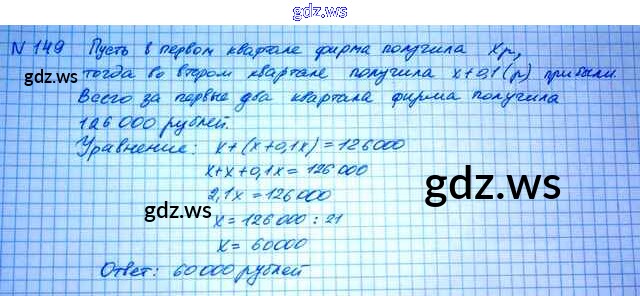 gdz.ws
N 149 Пусть в первом квартале фирма получила xр,
gdz.ws
тогда во втором квартале получила x+0,1(р) прибыли.
Всего за первые два квартала фирма получила
126 000 рублей.
Уравнение: x+(x+0,1x)=126000
x+x+0,1x=126 000
gdz.ws
2,1x=126000
gdz.ws
x=126000:21
x=60000
Ответ: 60 000 рублей
gdz.ws